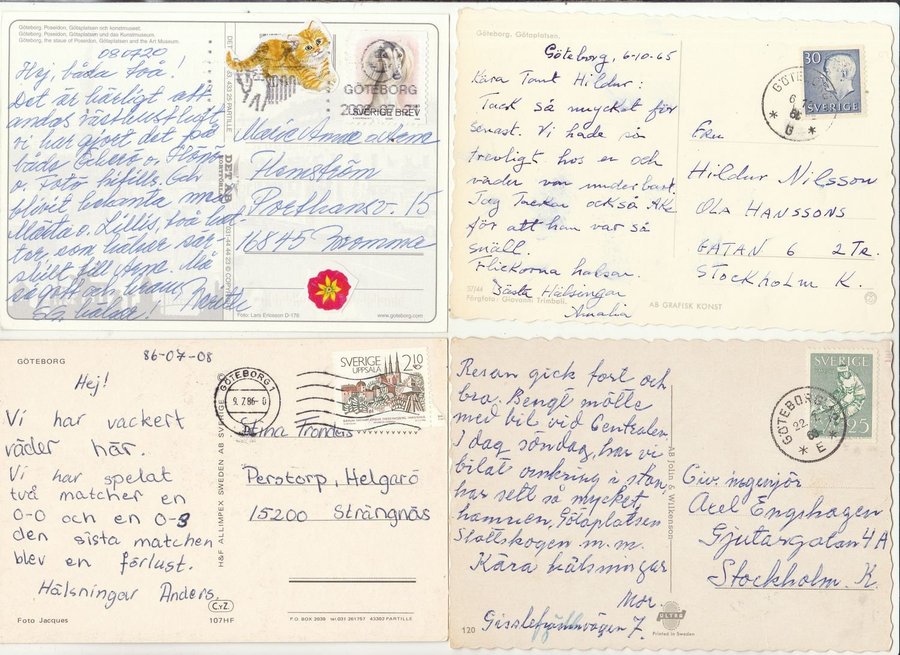 Göteborg. Poseidon, Götaplatsen och konstmuseet.
Göteborg. Poseidon, Götaplatsen und das Kunstmuseum.
Göteborg, the staue of Poseidon, Götaplatsen and the Art Museum.
080720
Hej, båda två!
Det är härligt att
andas västkustluft,
vi har gjort det på
både Öckerö o. Hönö
o. Fotö hitills. Har
blivit bekanta med
Märta o. Lillis, två
som hälsar sär-
skilt till Arne. Må
så gott och kram
Berith
GÖTEBORG
SVERIGE BREV
Maria Anna
Flomström
Porthansv. 15
16845 Bromma
DET AB
Foto: Lars Ericsson G-178
www.goteborg.com
Göteborg. Götaplatsen.
Göteborg, 6-10.65
Kära Tant Hildur:
Tack så mycket för
senast. Vi hade så
trevligt hos er och
vädur var underbart.
Jag Tackar också Åke
för att han var så
snäll.
Flickorna halsar.
Bäste Hälsingar
Amalia
57/44
Färgfoto: Giovanni Trimboli.
30
SVERIGE
Fru
Hildur Nilsson
OLA HANSSONS
GATAN 6 2TR.
STOCKHOLM K.
AB GRAFISK KONST
GÖTEBORG
86-07-08
Hej!
Vi har vackert
väder här.
Vi har spelat
två matcher en
0-0 och en 0-3
den sista matchen
blev en förlust.
Hälsningar Anders.
Foto Jacques
C.y.Z.
107HF
H&F ALLIMPEX SWEDEN AB
GÖTEBORG 1
9. 7. 86- 0
SVERIGE
UPPSALA
2.10
Stina Trondas
Perstorp, Helgarö
15200 Strängnäs
P.O. BOX 2030 tel 031 261757 43302 PARTILLE
Resan gick fort och
bra. Bengt mötte
med bil vid Centralen.
I dag söndag, har vi
bilat omkring i stan,
har sett så mycket,
hamnen, Götaplatsen
Slottskogen m.m.
Kära hälsningar
Mor.
7.
120
AB Jolin & Wilkenson
ULTRA
Printed in Sweden
SVERIGE
25
GÖTEBORG
E
Civ. ingenjör
Axel Engshagen
Gjutargatan 4A
Stockholm K.